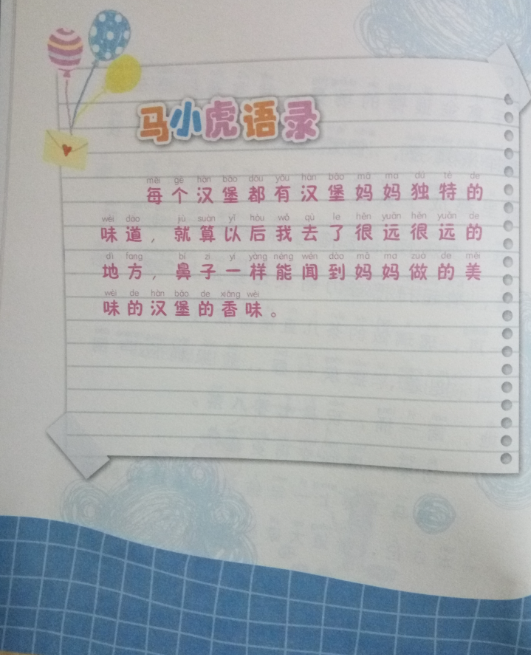 马小虎语录
měi gè hàn bǎo dōu yǒu hàn bǎo mā ma dú tè de
每个汉堡都有汉堡妈妈独特的
wèi dào jiù suàn yǐ hòu wǒ qù le hěn yuǎn hěn yuǎn de
味道，就算以后我去了很远很远的
dì fang bí zi yí yàng néng wén dào mā ma zuò de měi
地方，鼻子一样能闻到妈妈做的美
wèi de hàn bǎo de xiāng wèi
味的汉堡的香味。